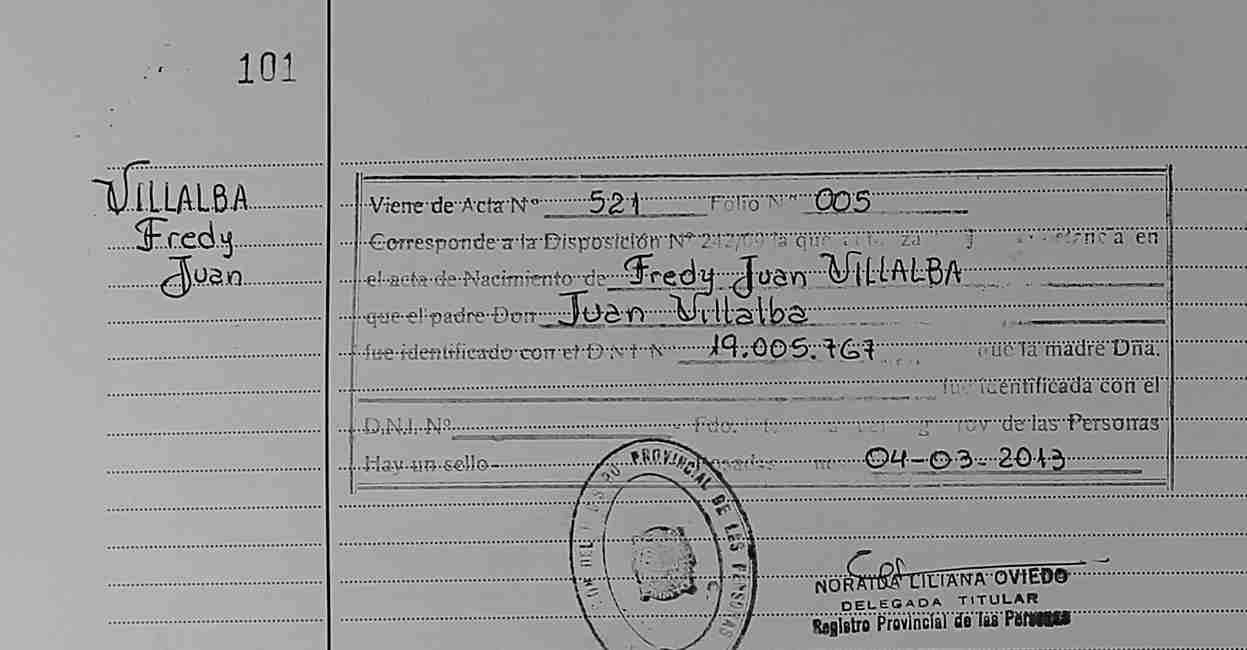 101
VILLALBA
Fredy
Juan
Viene de Acta Nº 521 Folio Nº 005
Corresponde a la Disposición Nº 242/09 la que en
el acta de Nacimiento de Fredy Juan VILLALBA
que el padre Don Juan Villalba
fue identificado con el D.N.I. Nº 19.005.767 que la madre Dña.
fue identificada con el
D.N.I. Nº Fdo. de las Personas
Hay un sello - Posadas 04-03-2013
PROVINCIAL DE LAS PERSONAS
NORAIDA LILIANA OVIEDO
DELEGADA TITULAR
Registro Provincial de las Personas